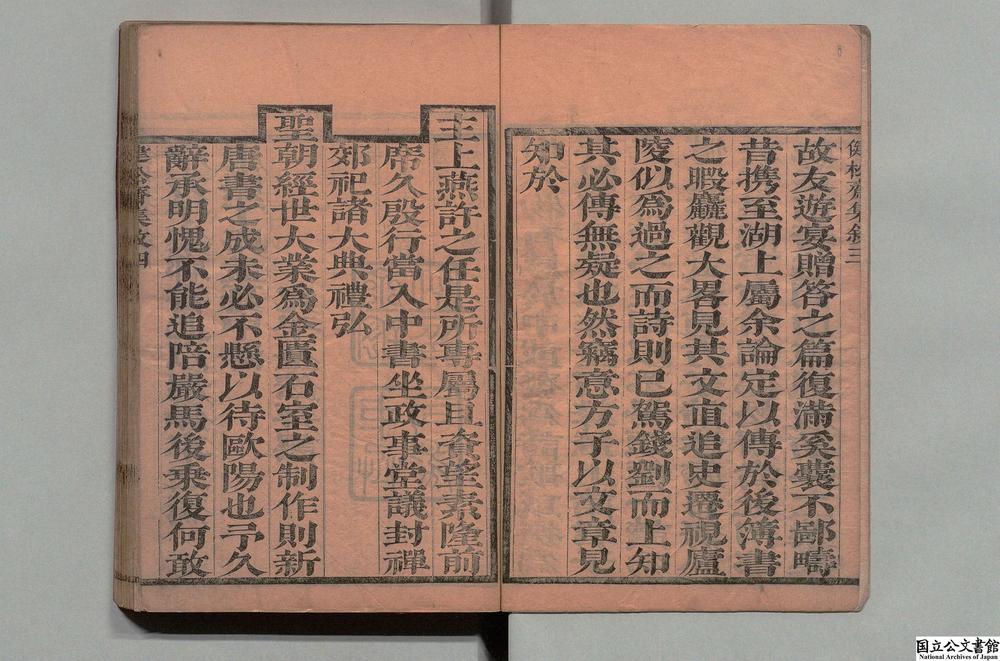 故友遊宴贈答之篇復滿奚囊不鄙疇
昔携至湖上屬余論定以傳於後簿書
之暇麤觀大畧見其文直追史遷視廬
陵似為過之而詩則已駕錢劉而上知
其必傳無疑也然竊意方子以文章見
知於
主上燕許之任是所專屬且資望素隆前
席久殷行當入中書坐政事堂議封禪
郊祀諸大典禮弘
聖朝經世大業為金匱石室之制作則新
唐書之成未必不懸以待歐陽也予久
辭承明愧不能追陪嚴馬後乗復何敢
国立公文書館
National Archives of Japan